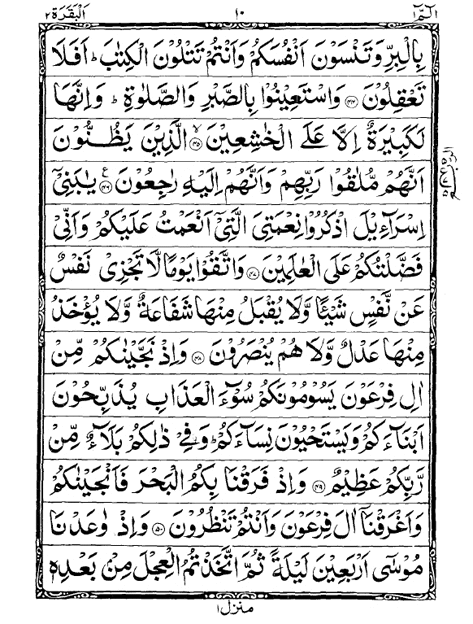 الٓمّٓ ۱ ١٠ اَلْبَقَرَة ٢
بِالْبِرِّ وَتَنْسَوْنَ اَنْفُسَكُمْ وَاَنْتُمْ تَتْلُوْنَ الْكِتٰبَ ؕ اَفَلَا
تَعْقِلُوْنَ ﴿۴۴﴾ وَاسْتَعِيْنُوْا بِالصَّبْرِ وَالصَّلٰوةِ ؕ وَاِنَّهَا
لَكَبِيْرَةٌ اِلَّا عَلَى الْخٰشِعِيْنَ ﴿۴۵﴾ۙ الَّذِيْنَ يَظُنُّوْنَ
اَنَّهُمْ مُّلٰقُوْا رَبِّهِمْ وَاَنَّهُمْ اِلَيْهِ رٰجِعُوْنَ ﴿۴۶﴾ع يٰبَنِيْٓ
اِسْرَآءِيْلَ اذْكُرُوْا نِعْمَتِيَ الَّتِيْٓ اَنْعَمْتُ عَلَيْكُمْ وَاَنِّيْ
فَضَّلْتُكُمْ عَلَى الْعٰلَمِيْنَ ﴿۴۷﴾ وَاتَّقُوْا يَوْمًا لَّا تَجْزِيْ نَفْسٌ
عَنْ نَّفْسٍ شَيْئًا وَّلَا يُقْبَلُ مِنْهَا شَفَاعَةٌ وَّلَا يُؤْخَذُ
مِنْهَا عَدْلٌ وَّلَا هُمْ يُنْصَرُوْنَ ﴿۴۸﴾ وَاِذْ نَجَّيْنٰكُمْ مِّنْ
اٰلِ فِرْعَوْنَ يَسُوْمُوْنَكُمْ سُوْٓءَ الْعَذَابِ يُذَبِّحُوْنَ
اَبْنَآءَكُمْ وَيَسْتَحْيُوْنَ نِسَآءَكُمْ ؕ وَفِيْ ذٰلِكُمْ بَلَآءٌ مِّنْ
رَّبِّكُمْ عَظِيْمٌ ﴿۴۹﴾ وَاِذْ فَرَقْنَا بِكُمُ الْبَحْرَ فَاَنْجَيْنٰكُمْ
وَاَغْرَقْنَآ اٰلَ فِرْعَوْنَ وَاَنْتُمْ تَنْظُرُوْنَ ﴿۵۰﴾ وَاِذْ وٰعَدْنَا
مُوْسٰٓى اَرْبَعِيْنَ لَيْلَةً ثُمَّ اتَّخَذْتُمُ الْعِجْلَ مِنْۢ بَعْدِهٖ
منزل ۱